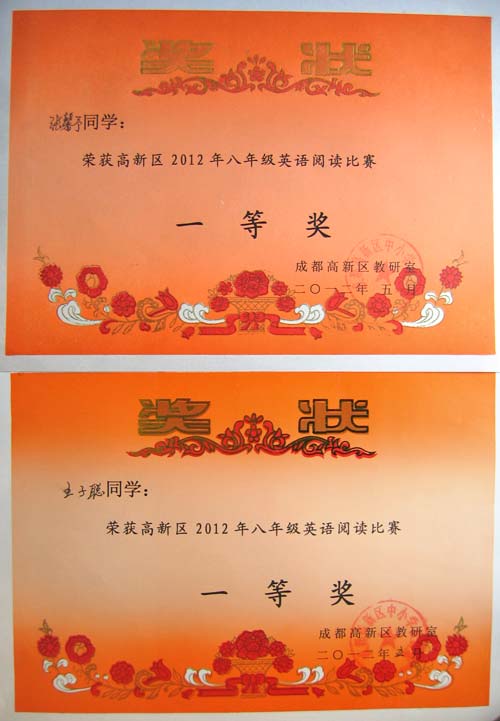 奖 状
张馨予同学：
荣获高新区2012年八年级英语阅读比赛
一 等 奖
成都高新区教研室
二〇一二年 五 月
奖 状
王子聪同学：
荣获高新区2012年八年级英语阅读比赛
一 等 奖
成都高新区教研室
二〇一二年五月